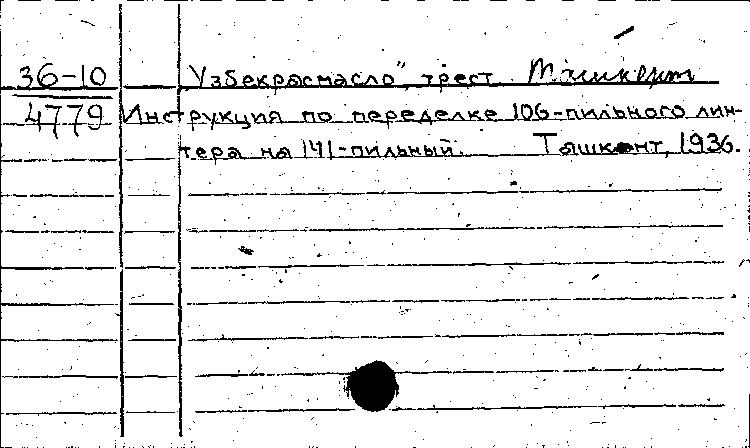 36-10 Узбекрасмасло", трест Ташкент
4779 Инструкция по переделке 106-пильного лин-
тера на 141-пильный. Ташкент, 1936.